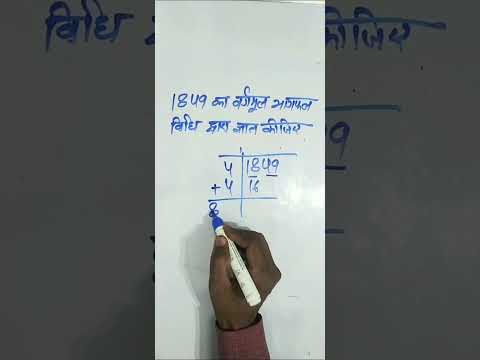 विधि द्वारा ज्ञात कीजिए
1849 का वर्गमूल भागफल
विधि द्वारा ज्ञात कीजिए
4 1849
+ 4 16
8